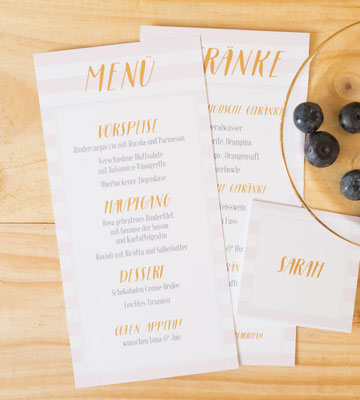 MENÜ
VORSPEISE
Rindercarpaccio mit Rucola und Parmesan
Verschiedene Blattsalate
mit Balsamico Vinaigrette
Überbackener Ziegenkäse
HAUPTGANG
Rosa gebratenes Rinderfilet
mit Gemüse der Saison
und Kartoffelgratin
Ravioli mit Ricotta und Salbeibutter
DESSERT
Schokoladen Crème Brûlée
Leichtes Tiramisu
GUTEN APPETIT!
wünschen Lena & Jan
RÄNKE
GETRÄNKE
Orangensaft
GETRÄNKE
Fass
SARAH